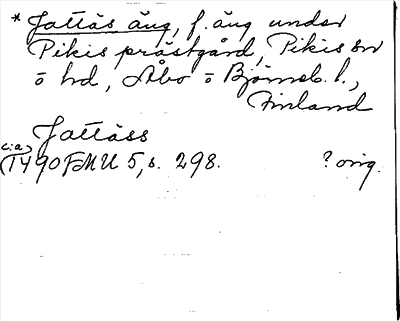 * Jattäs äng, f. äng under
Pikis prästgård, Pikis sn
o hd, Åbo o Björneb. l.,
Finland
Jattäss
(c:a)
1490 FMU 5, s. 298. ? orig.